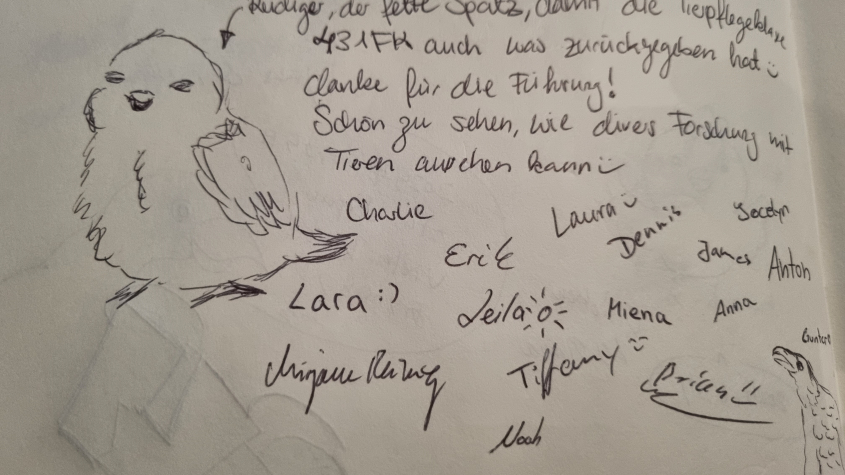 Rüdiger, der fette Spatz, damit die Tierpflegeklasse
431FK auch was zurückgegeben hat :)
danke für die Führung!
Schön zu sehen, wie divers Forschung mit
Tieren aussehen kann :)
Charlie
Laura :)
Dennis
Jocelyn
Erik
James
Anton
Lara :)
Leila
Miena
Anna
Tiffany :)
Noah